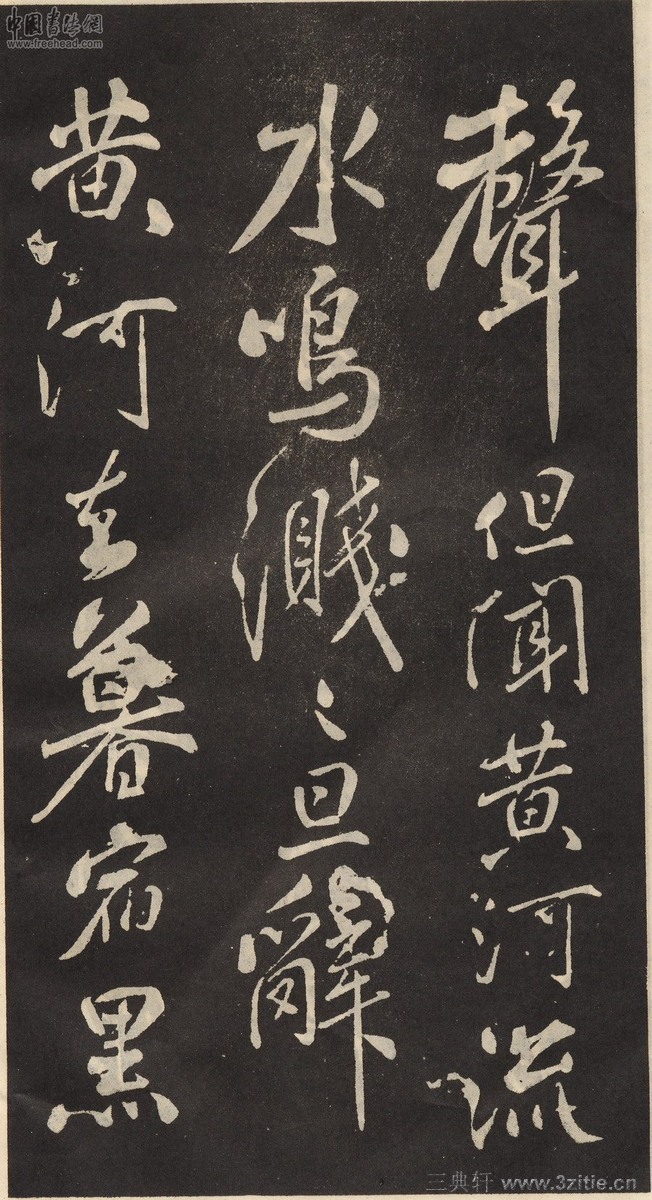 中國書法網
www.freehead.com
聲但聞黄河流
水鳴濺〻旦辭
黄河去暮宿黑
三典轩 www.3zitie.cn